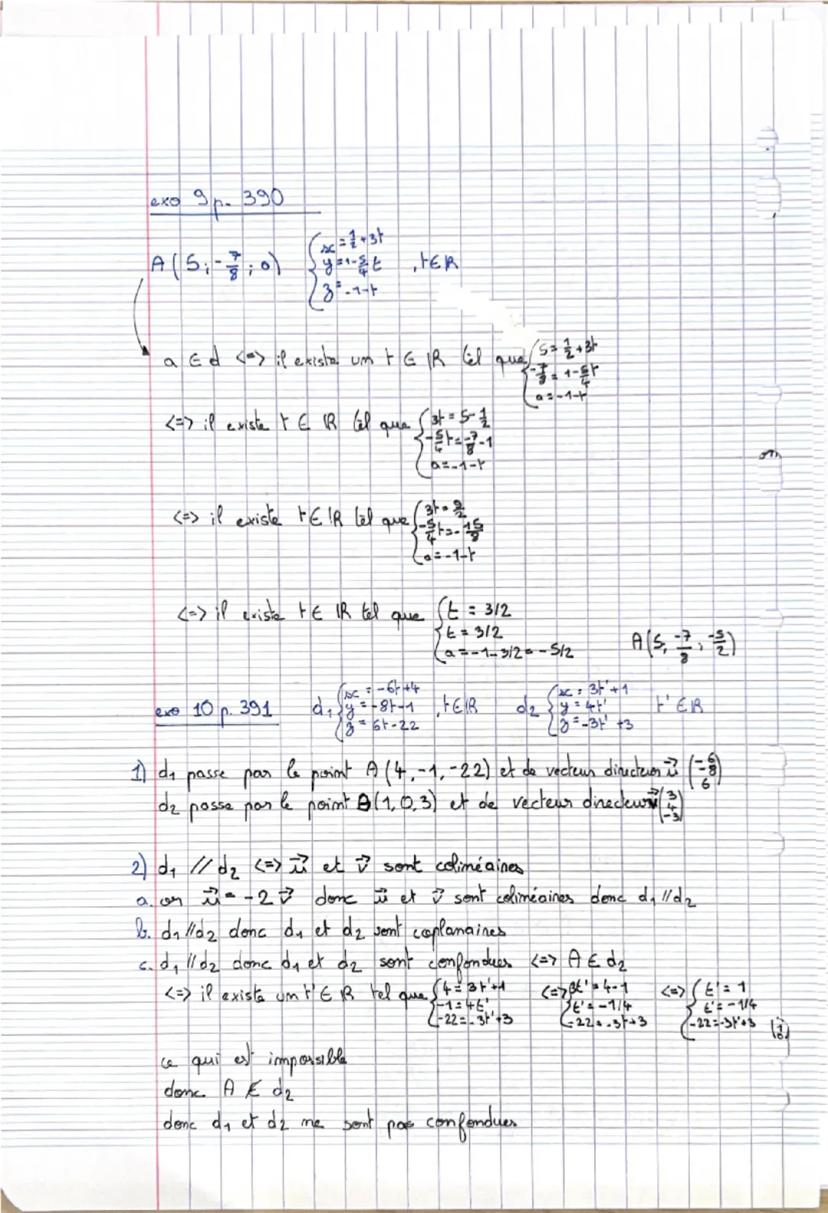 exo 9 p. 390
A(5; -7/8; a) { x = 1/2 + 3t
y = 1 - 5/4 t , t ∈ ℝ
z = -1 - t
a ∈ d <=> il existe un t ∈ ℝ tel que { 5 = 1/2 + 3t
-7/8 = 1 - 5/4 t
a = -1 - t
<=> il existe t ∈ ℝ tel que { 3t = 5 - 1/2
-5/4 t = -7/8 - 1
a = -1 - t
<=> il existe t ∈ ℝ tel que { 3t = 9/2
-5/4 t = -15/8
a = -1 - t
<=> il existe t ∈ ℝ tel que { t = 3/2
t = 3/2
a = -1 - 3/2 = -5/2 A(5, -7/8, -5/2)
exo 10 p. 391 d1 { x = -6t + 4
y = -8t - 1 , t ∈ ℝ
z = 6t - 22
d2 { x = 3t' + 1
y = 4t' t' ∈ ℝ
z = -3t' + 3
1) d1 passe par le point A(4, -1, -22) et de vecteur directeur u⃗ (-6 -8 6)
d2 passe par le point B(1, 0, 3) et de vecteur directeur v⃗ (3 4 -3)
2) d1 // d2 <=> u⃗ et v⃗ sont coliméaires
a. or u⃗ = -2 v⃗ donc u⃗ et v⃗ sont coliméaires donc d1 // d2
b. d1 // d2 donc d1 et d2 sont coplanaires
c. d1 // d2 donc d1 et d2 sont confondues <=> A ∈ d2
<=> il existe un t' ∈ ℝ tel que { 4 = 3t' + 1
-1 = 4t'
-22 = -3t' + 3
<=> { 3t' = 4 - 1
t' = -1/4
-22 = -3t' + 3
<=> { t' = 1
t' = -1/4
-22 = -3t' + 3
ce qui est impossible
donc A ∉ d2
donc d1 et d2 ne sont pas confondues